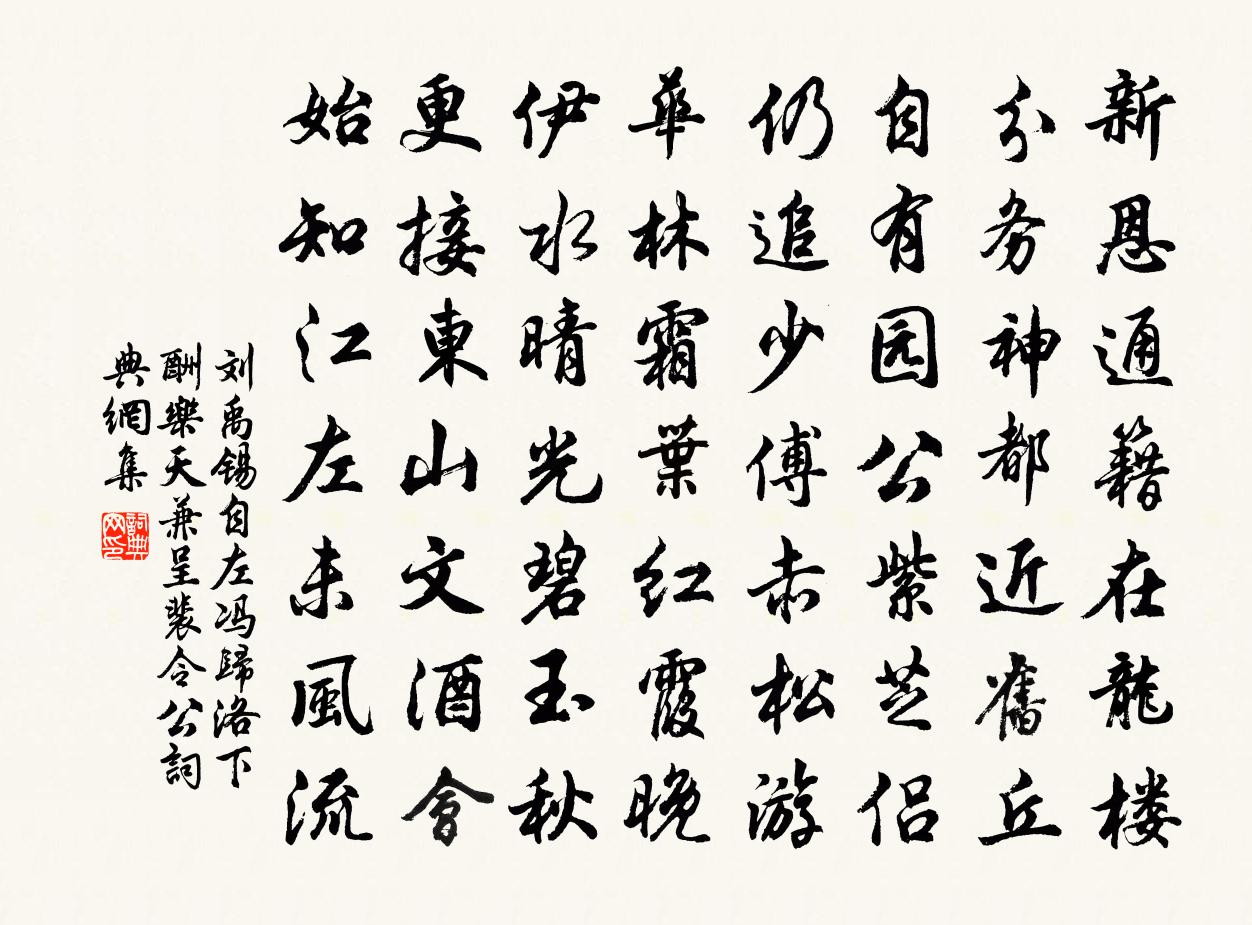 新恩通籍在龍楼
分务神都近舊丘
自有园公紫芝侣
仍追少傅赤松游
華林霜葉红霞晚
伊水晴光碧玉秋
更接東山文酒會
始知江左未風流
刘禹锡自左冯歸洛下
酬樂天兼呈裴令公詞
典網集
詞典
网印